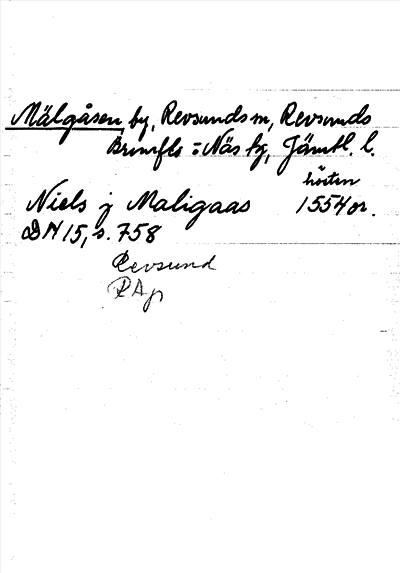 Mälgåsen, by, Revsunds sn, Revsunds
Brunflo = Näs tg, Jämtl. l.
hösten
Niels j Maligaas 1554 or.
DN 15, s. 758
Revsund
RAp